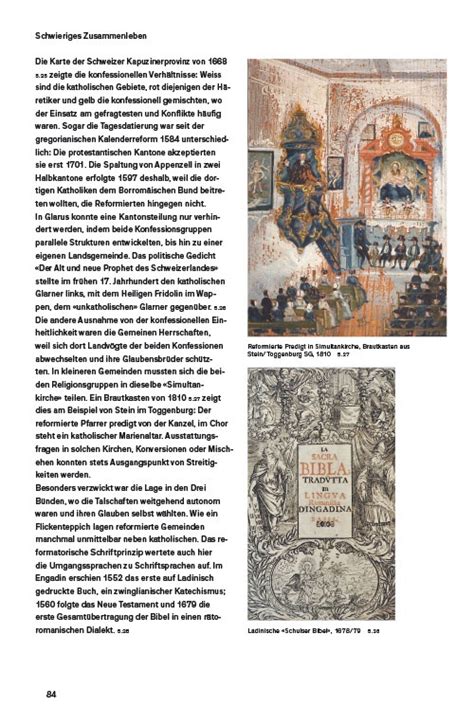 Schwieriges Zusammenleben
Die Karte der Schweizer Kapuzinerprovinz von 1668
5.25 zeigte die konfessionellen Verhältnisse: Weiss
sind die katholischen Gebiete, rot diejenigen der Hä-
retiker und gelb die konfessionell gemischten, wo
der Einsatz am gefragtesten und Konflikte häufig
waren. Sogar die Tagesdatierung war seit der
gregorianischen Kalenderreform 1584 unterschied-
lich: Die protestantischen Kantone akzeptierten
sie erst 1701. Die Spaltung von Appenzell in zwei
Halbkantone erfolgte 1597 deshalb, weil die dor-
tigen Katholiken dem Borromäischen Bund beitre-
ten wollten, die Reformierten hingegen nicht.
In Glarus konnte eine Kantonsteilung nur verhin-
dert werden, indem beide Konfessionsgruppen
parallele Strukturen entwickelten, bis hin zu einer
eigenen Landsgemeinde. Das politische Gedicht
«Der Alt und neue Prophet des Schweizerlandes»
stellte im frühen 17. Jahrhundert den katholischen
Glarner links, mit dem Heiligen Fridolin im Wap-
pen, dem «unkatholischen» Glarner gegenüber. 5.26
Die andere Ausnahme von der konfessionellen Ein-
heitlichkeit waren die Gemeinen Herrschaften,
weil sich dort Landvögte der beiden Konfessionen
abwechselten und ihre Glaubensbrüder schütz-
ten. In kleineren Gemeinden mussten sich die bei-
den Religionsgruppen in dieselbe «Simultan-
kirche» teilen. Ein Brautkasten von 1810 5.27 zeigt
dies am Beispiel von Stein im Toggenburg: Der
reformierte Pfarrer predigt von der Kanzel, im Chor
steht ein katholischer Marienaltar. Ausstattungs-
fragen in solchen Kirchen, Konversionen oder Misch-
ehen konnten stets Ausgangspunkt von Streitig-
keiten werden.
Besonders verzwickt war die Lage in den Drei
Bünden, wo die Talschaften weitgehend autonom
waren und ihren Glauben selbst wählten. Wie ein
Flickenteppich lagen reformierte Gemeinden
manchmal unmittelbar neben katholischen. Das re-
formatorische Schriftprinzip wertete auch hier
die Umgangssprachen zu Schriftsprachen auf. Im
Engadin erschien 1552 das erste auf Ladinisch
gedruckte Buch, ein zwinglianischer Katechismus;
1560 folgte das Neue Testament und 1679 die
erste Gesamtübertragung der Bibel in einen räto-
romanischen Dialekt. 5.28
Reformierte Predigt in Simultankirche, Brautkasten aus
Stein/Toggenburg SG, 1810 5.27
LA
SACRA
BIBLA
TRADVTTA
IN
LINGVA
DINGADINA
Ladinische «Schulser Bibel», 1678/79 5.28
84